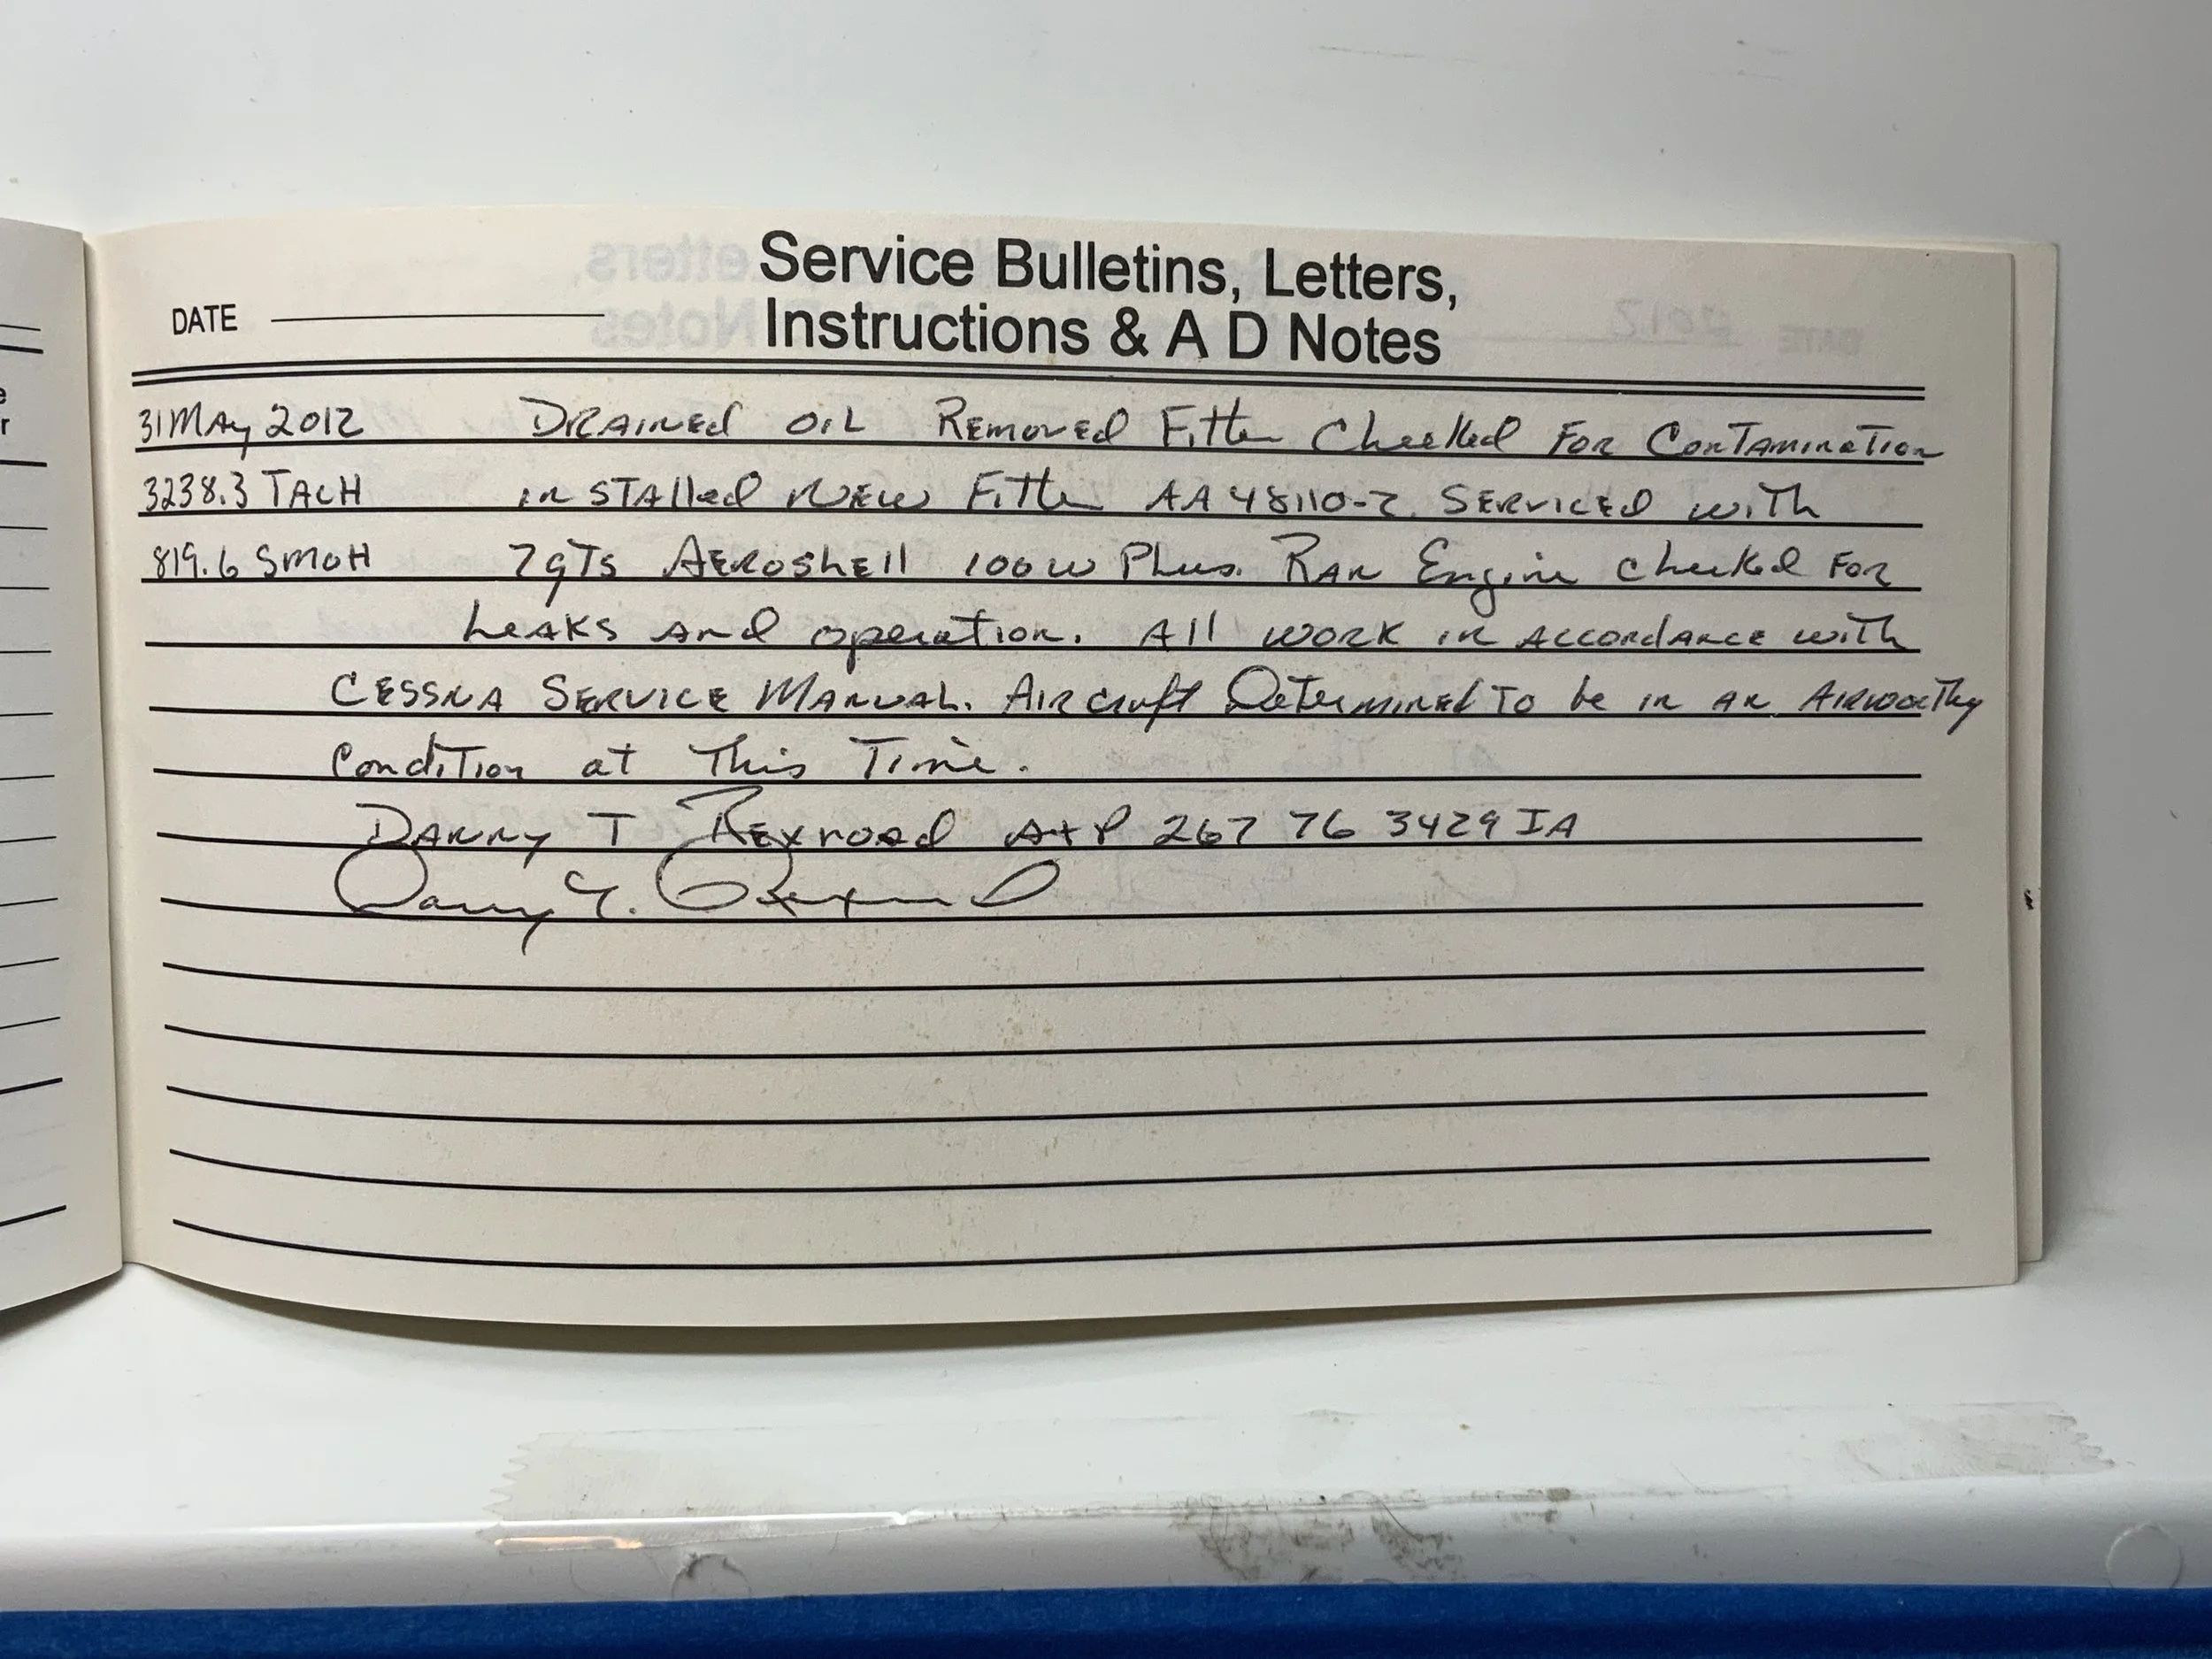 Service Bulletins, Letters,
DATE Instructions & A D Notes
31 May 2012 Drained oil Removed Filter Checked For Contamination
3238.3 TACH installed New Filter AA48110-2. Serviced with
819.6 SMOH 7qts Aeroshell 100W Plus. Ran Engine checked For
Leaks and operation. All work in accordance with
Cessna Service Manual. Aircraft Determined To be in an Airworthy
Condition at This Time.
Danny T Rexroad A+P 267 76 3429 IA
Danny T. Rexroad